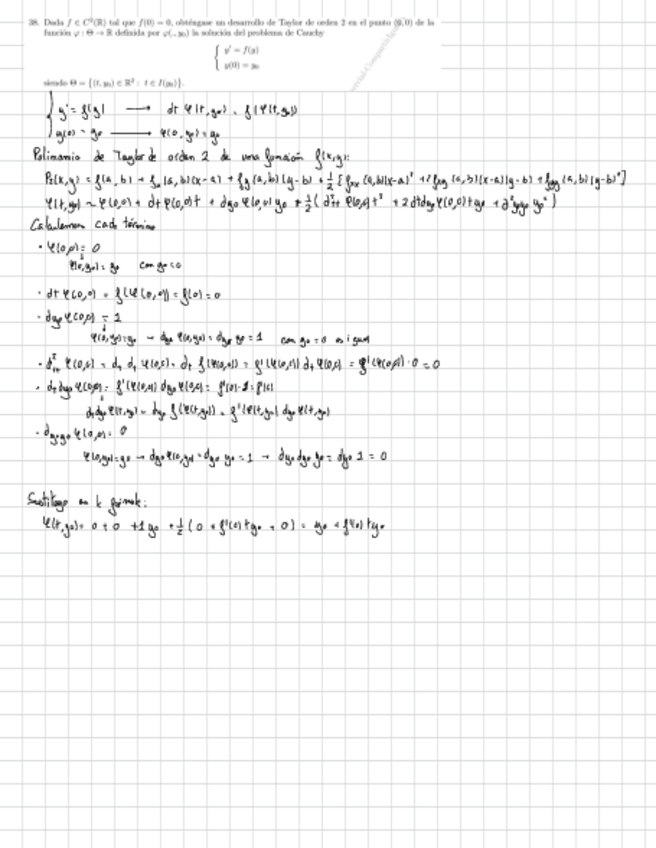 38. Dada f ∈ C²(ℝ) tal que f(0) = 0, obténgase un desarrollo de Taylor de orden 2 en el punto (0,0) de la
función φ : Θ → ℝ definida por φ(., y₀) la solución del problema de Cauchy
{ y' = f(y)
y(0) = y₀
siendo Θ = {(t, y₀) ∈ ℝ² : t ∈ I(y₀)}.
{ y' = f(y) → dt φ(t, y₀) = f(φ(t, y₀))
y(0) = y₀ → φ(0, y₀) = y₀
Polinomio de Taylor de orden 2 de una función f(x,y):
P₂(x,y) = f(a,b) + fₓ(a,b)(x-a) + f_y(a,b)(y-b) + 1/2 [fₓₓ(a,b)(x-a)² + 2fₓy(a,b)(x-a)(y-b) + f_yy(a,b)(y-b)²]
φ(t,y₀) ~ φ(0,0) + dt φ(0,0)t + dy₀ φ(0,0) y₀ + 1/2 (d²tt φ(0,0)t² + 2dtdy₀ φ(0,0)ty₀ + d²y₀y₀ y₀²)
Calculemos cada término
· φ(0,0) = 0
φ(0,y₀) = y₀ con y₀ = 0
· dt φ(0,0) = f(φ(0,0)) = f(0) = 0
· dy₀ φ(0,0) = 1
φ(0,y₀) = y₀ → dy₀ φ(0,y₀) = dy₀ y₀ = 1 con y₀ = 0 es igual
· d²tt φ(0,0) = dt dt φ(0,0) = dt f(φ(0,0)) = f'(φ(0,0)) dt φ(0,0) = f'(φ(0,0)) · 0 = 0
· dt dy₀ φ(0,0) = f'(φ(0,0)) dy₀ φ(0,0) = f'(0) · 1 = f'(0)
dt dy₀ φ(t,y₀) = dy₀ f(φ(t,y₀)) = f'(φ(t,y₀)) dy₀ φ(t,y₀)
· dy₀y₀ φ(0,0) = 0
φ(0,y₀) = y₀ → dy₀ φ(0,y₀) = dy₀ y₀ = 1 → dy₀ dy₀ y₀ = dy₀ 1 = 0
Sustituyo en la fórmula:
φ(t,y₀) = 0 + 0 + 1 y₀ + 1/2 (0 + f'(0) t y₀ + 0) = y₀ + f'(0) t y₀